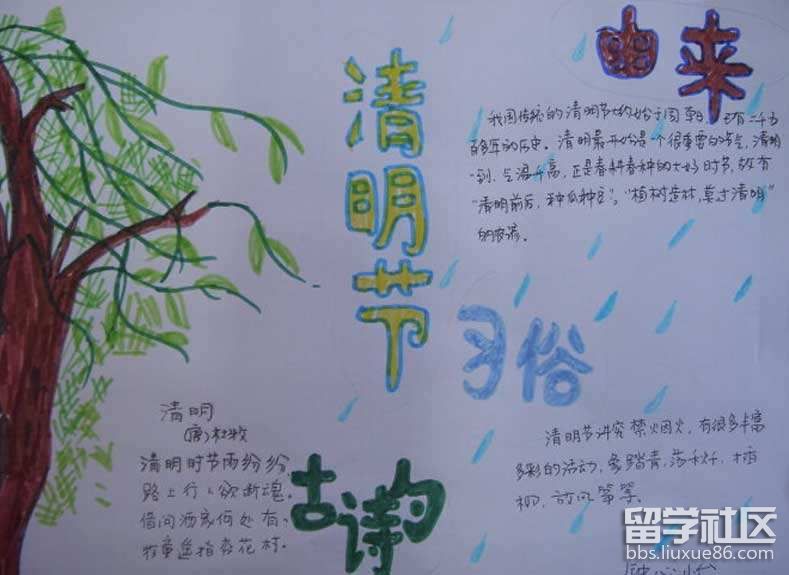 清明节
由来
我国传统的清明节大约始于周朝，已有二千五
百多年的历史。清明最开始是一个很重要的节气，清明
一到，气温升高，正是春耕春种的大好时节，故有
“清明前后，种瓜种豆”，“植树造林，莫过清明”
的农谚。
习俗
清明节讲究禁烟火，有很多丰富
多彩的活动，象踏青，荡秋千，插
柳，放风筝等。
清明
(唐)杜牧
清明时节雨纷纷，
路上行人欲断魂。
借问酒家何处有，
牧童遥指杏花村。
古诗
留学社区
bbs.liuxue86.com